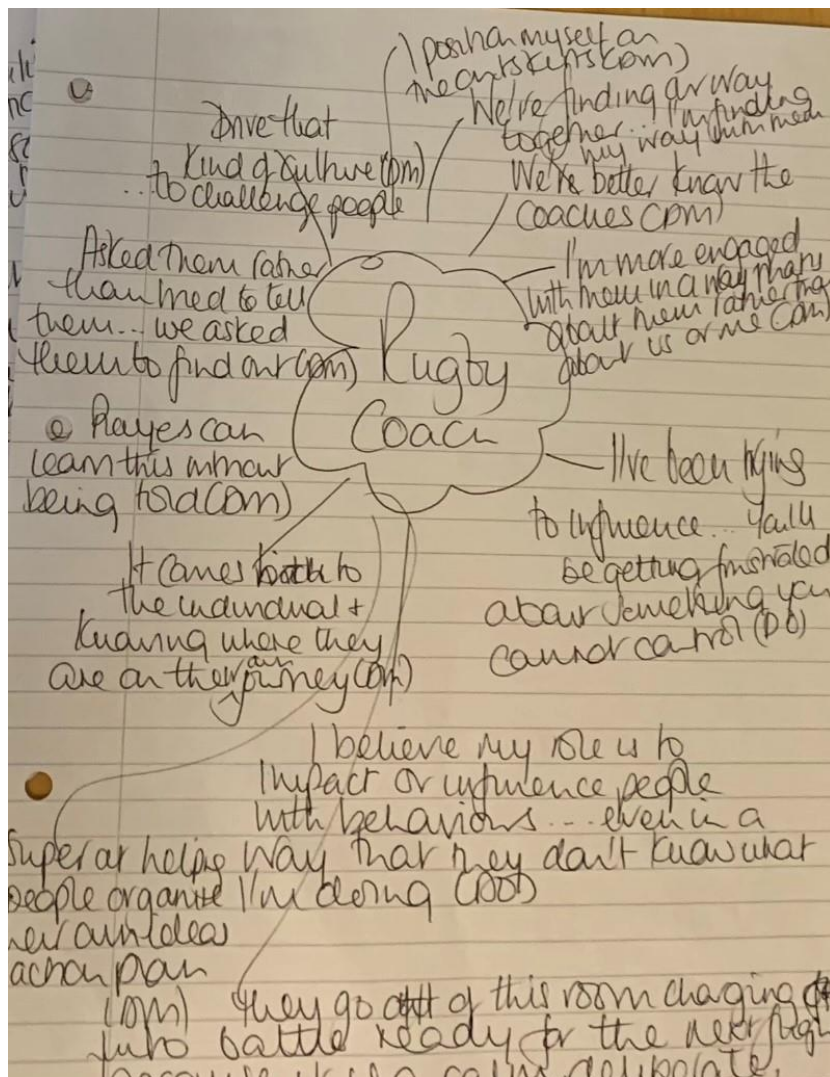 I position myself on
the outskirts (DM)
We're finding our way
together... I'm finding
my way with them
We're better know the
coaches (DM)
I'm more engaged
with them in a way that's
about them rather than
about us or me (DM)
Drive that
kind of culture (DM)
... to challenge people
Asked them rather
than tried to tell
them... we asked
them to find out (DM)
Rugby
Coach
Players can
learn this without
being told (DM)
I've been trying
to influence... you'll
be getting frustrated
about something you
cannot control (DO)
It comes back to
the individual +
knowing where they
are on their own
journey (DM)
I believe my role is to
impact or influence people
with behaviours... even in a
way that they don't know what
I'm doing (DO)
Super at helping
people organise
own ideas
action plan
(DM)
they go out of this room charging
into battle ready for the next